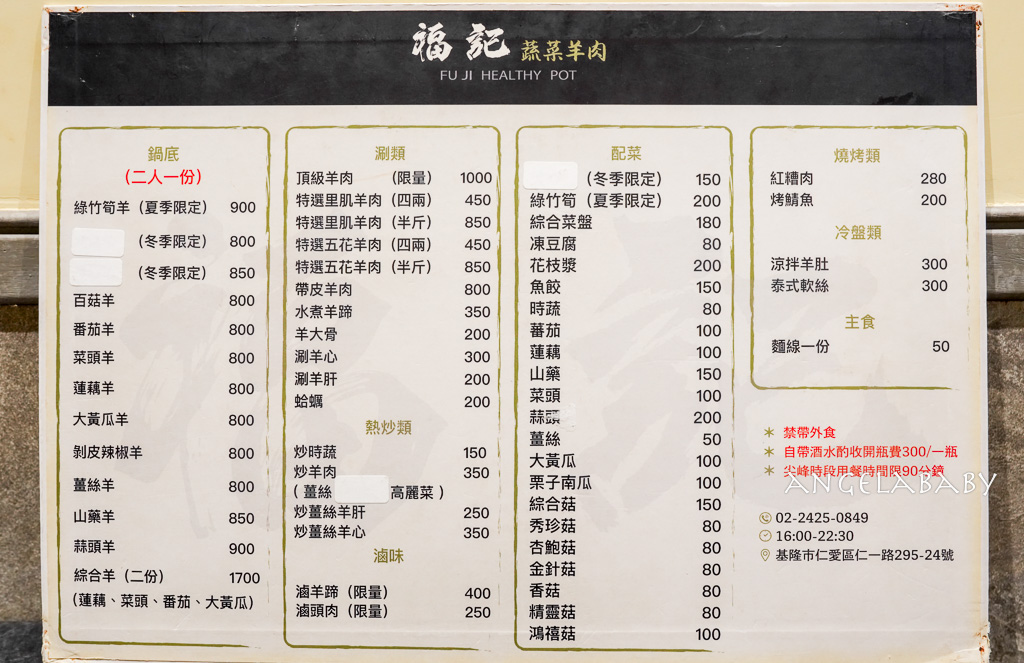 福記 蔬菜羊肉
FU JI HEALTHY POT
鍋底
(二人一份)
綠竹筍羊（夏季限定） 900
（冬季限定） 800
（冬季限定） 850
百菇羊 800
番茄羊 800
菜頭羊 800
蓮藕羊 800
大黃瓜羊 800
剝皮辣椒羊 800
薑絲羊 800
山藥羊 850
蒜頭羊 900
綜合羊（二份） 1700
（蓮藕、菜頭、番茄、大黃瓜）
涮類
頂級羊肉 （限量） 1000
特選里肌羊肉（四兩） 450
特選里肌羊肉（半斤） 850
特選五花羊肉（四兩） 450
特選五花羊肉（半斤） 850
帶皮羊肉 800
水煮羊蹄 350
羊大骨 200
涮羊心 300
涮羊肝 200
蛤蠣 200
熱炒類
炒時蔬 150
炒羊肉 350
( 薑絲 高麗菜 )
炒薑絲羊肝 250
炒薑絲羊心 350
滷味
滷羊蹄（限量） 400
滷頭肉（限量） 250
配菜
（冬季限定） 150
綠竹筍（夏季限定） 200
綜合菜盤 180
凍豆腐 80
花枝漿 200
魚餃 150
時蔬 80
蕃茄 100
蓮藕 100
山藥 150
菜頭 100
蒜頭 200
薑絲 50
大黃瓜 100
栗子南瓜 100
綜合菇 150
秀珍菇 80
杏鮑菇 80
金針菇 80
香菇 80
精靈菇 80
鴻禧菇 100
燒烤類
紅糟肉 280
烤鯖魚 200
冷盤類
涼拌羊肚 300
泰式軟絲 300
主食
麵線一份 50
＊ 禁帶外食
＊ 自帶酒水酌收開瓶費300/一瓶
＊ 尖峰時段用餐時間限90分鐘
ANGELABABY
02-2425-0849
16:00-22:30
基隆市仁愛區仁一路295-24號